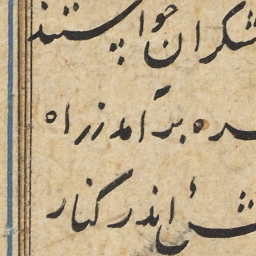 شکران خواستند
ده برآمد ز راه
اندر کنار